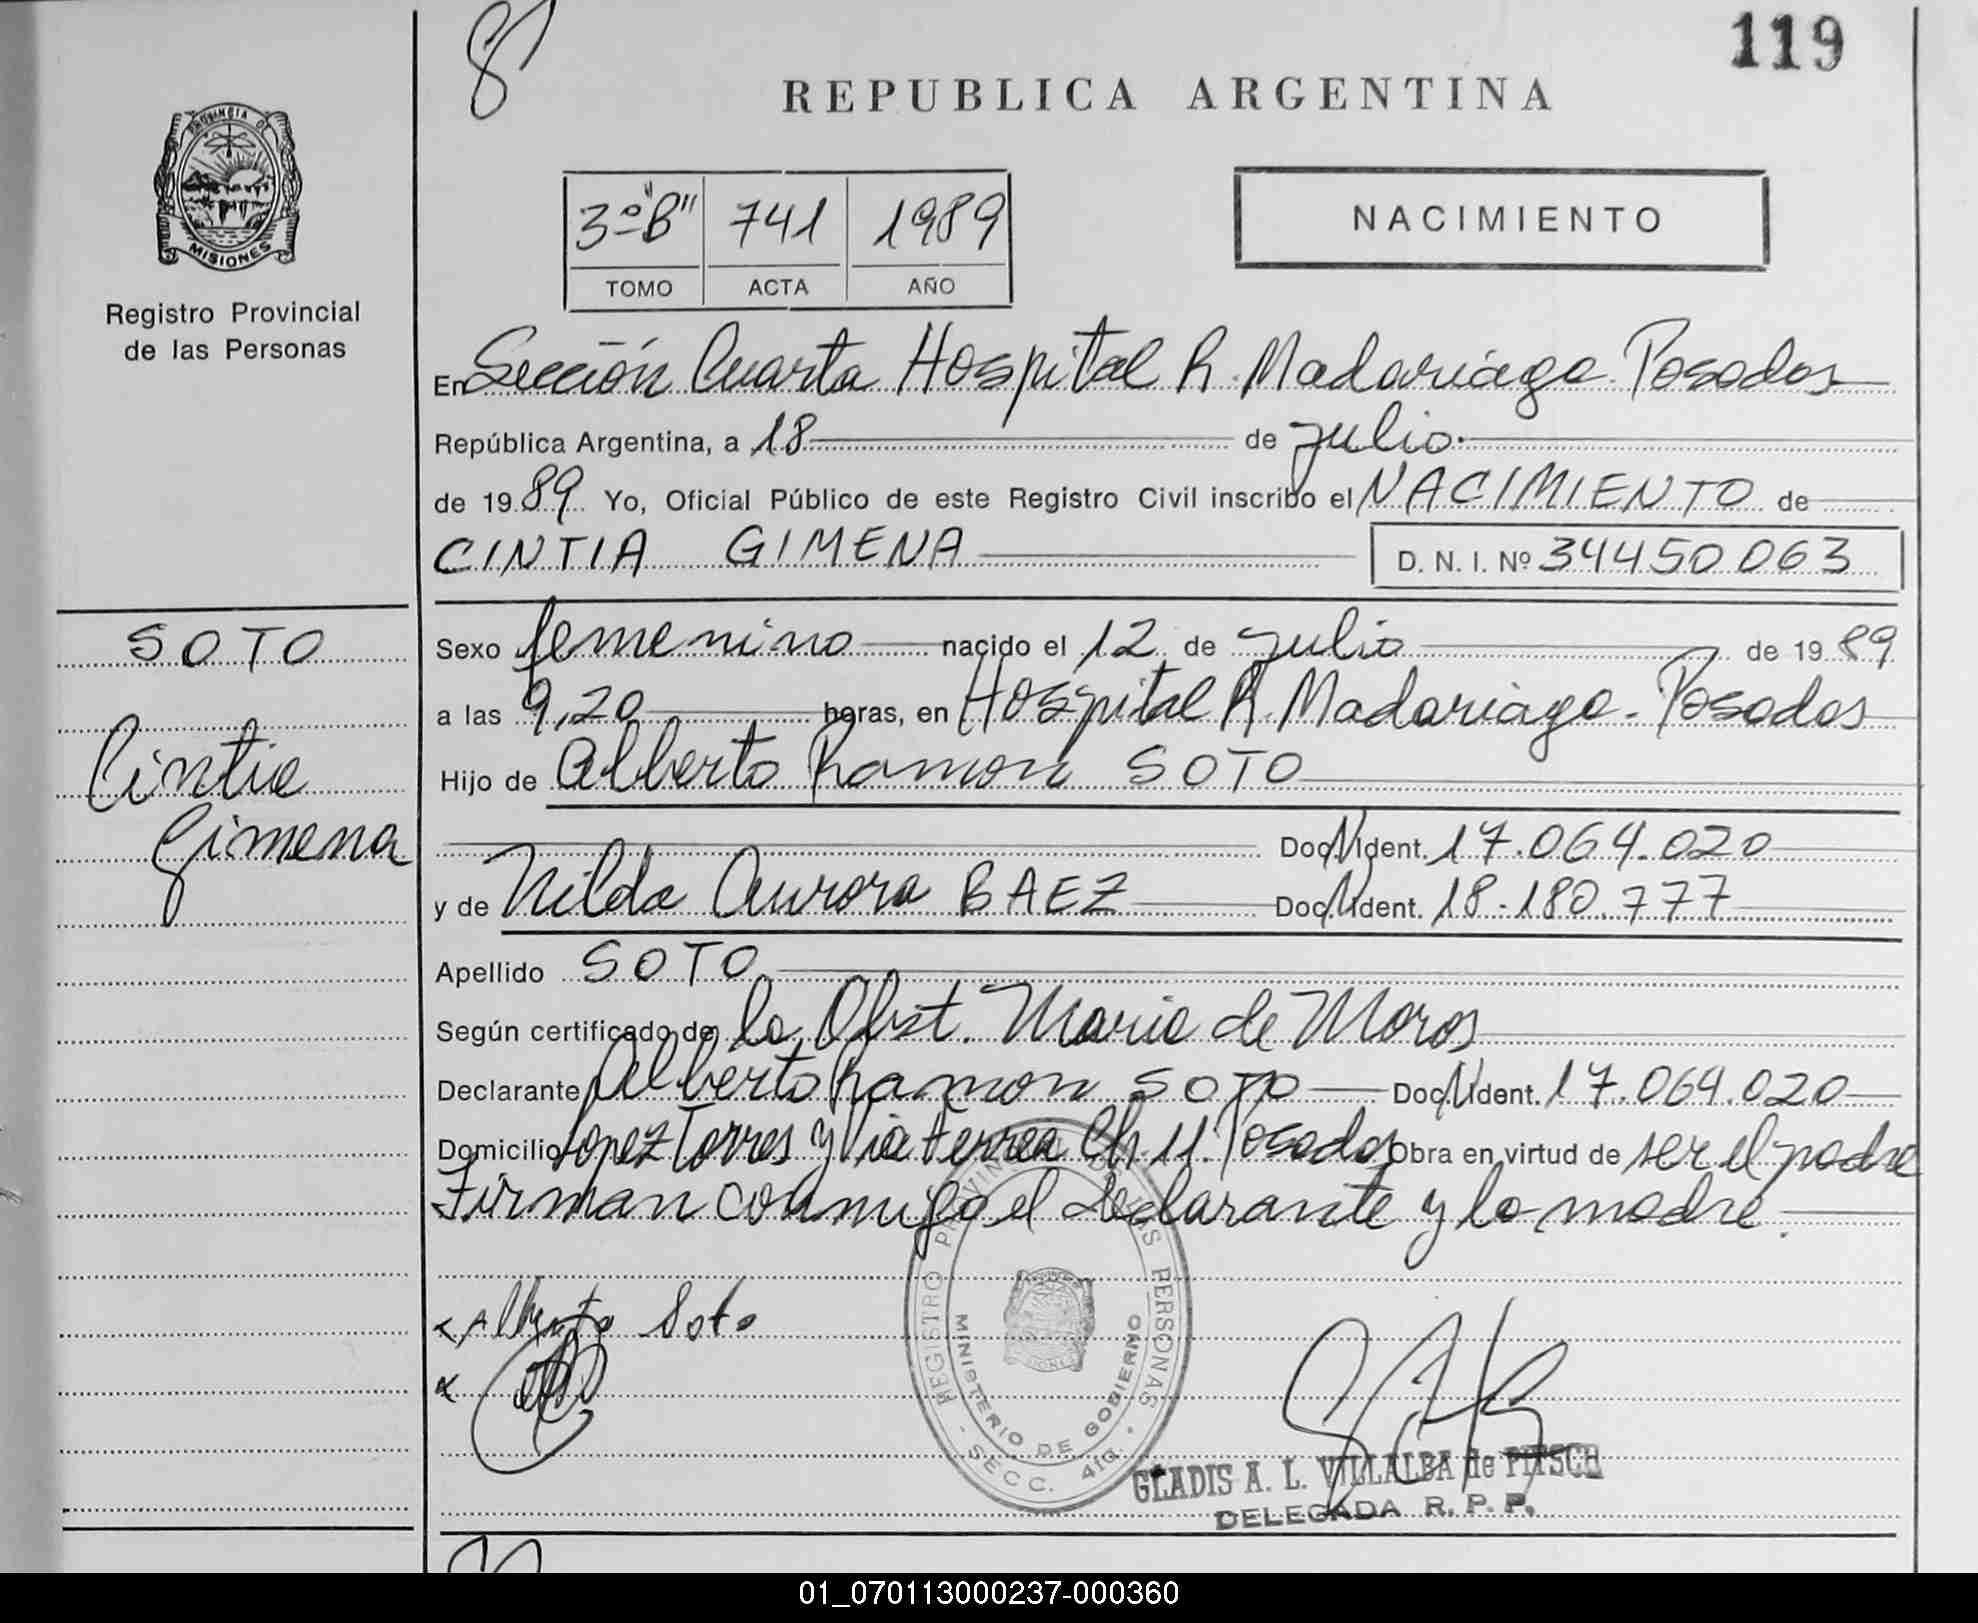 119
REPUBLICA ARGENTINA
PROVINCIA DE
MISIONES
Registro Provincial
de las Personas
3º "B" 741 1989
TOMO ACTA AÑO
NACIMIENTO
En Sección Cuarta Hospital R. Madariaga. Posadas
República Argentina, a 18 de julio.
de 1989 Yo, Oficial Público de este Registro Civil inscribo el NACIMIENTO de
CINTIA GIMENA D. N. I. Nº 34450063
SOTO
Cintia
Gimena
Sexo femenino nacido el 12 de julio de 1989
a las 9,20 horas, en Hospital R. Madariaga. Posadas
Hijo de Alberto Ramon SOTO
Doc. Ident. 17.064.020
y de Nilda Aurora BAEZ Doc. Ident. 18.180.777
Apellido SOTO
Según certificado de la Obst. Maria de Moros
Declarante Alberto Ramon SOTO Doc. Ident. 17.064.020
Domicilio Lopez Torres y Via Ferrea Ch. 11. Posadas Obra en virtud de ser el padre
Firman conmigo el declarante y la madre.
Alberto Soto
REGISTRO PROVINCIAL DE LAS PERSONAS
MINISTERIO DE GOBIERNO
SECC. 4ta.
GLADIS A. L. VILLALBA de PITSCH
DELEGADA R. P. P.
01_070113000237-000360